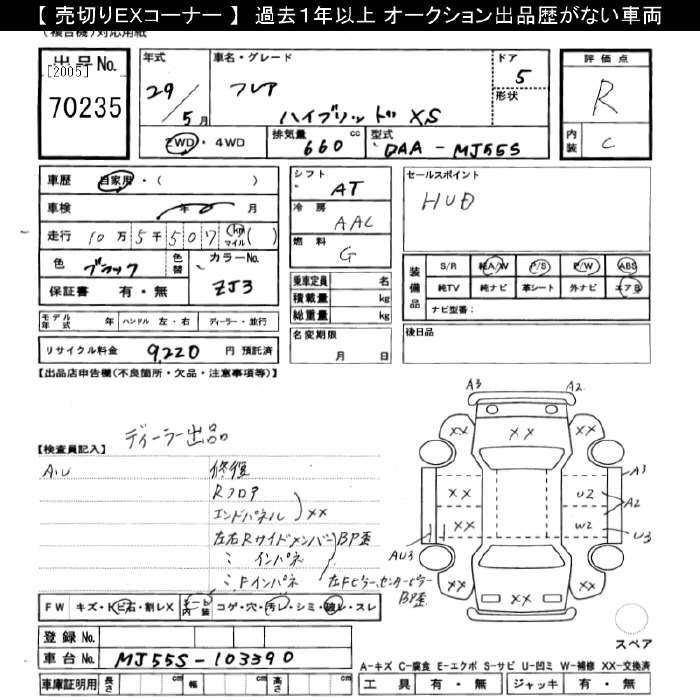 【 売切りEXコーナー 】 過去１年以上 オークション出品歴がない車両
(複合機)対応用紙
出品No.
[2005]
70235
年式
29/5月
車名・グレード
フレア
ハイブリッド XS
ドア
5
形状
評価点
R
内装
C
2WD・4WD
排気量
660 cc
型式
DAA-MJ55S
車歴 自家用・( )
車検 年 月
走行 10万5千507 km マイル ( )
色 ブラック
色替
カラーNo.
ZJ3
保証書 有・無
シフト
AT
冷房
AAC
燃料
G
セールスポイント
HUD
装備品
S/R 純A/W P/S P/W ABS
純TV 純ナビ 革シート 外ナビ エアB
ナビ型番：
乗車定員 名
積載量 kg
総重量 kg
モデル年式 年 ハンドル 左・右 ディーラー・並行
リサイクル料金 9,220 円 預託済
名変期限
月 日
後日品
【出品店申告欄(不良箇所・欠品・注意事項等)】
ディーラー出品
【検査員記入】
A.U
修復
Rフロア
エンドパネル
××
左右Rサイドメンバー
〃 インパネ
BP歪
〃 Fインパネ
左Fピラー、センターピラー
BP歪
A3
A2
××
××
××
××
U2
A3
A2
××
W2
U3
AU3
××
××
××
スペア
FW キズ・トビ石・割レX
シート内装 コゲ・穴・汚レ・シミ・破レ・スレ
登録No.
車台No. MJ55S-103390
車庫証明用 長さ cm 幅 cm 高さ cm
A-キズ C-腐食 E-エクボ S-サビ U-凹ミ W-補修 XX-交換済
工具 有・無 ジャッキ 有・無